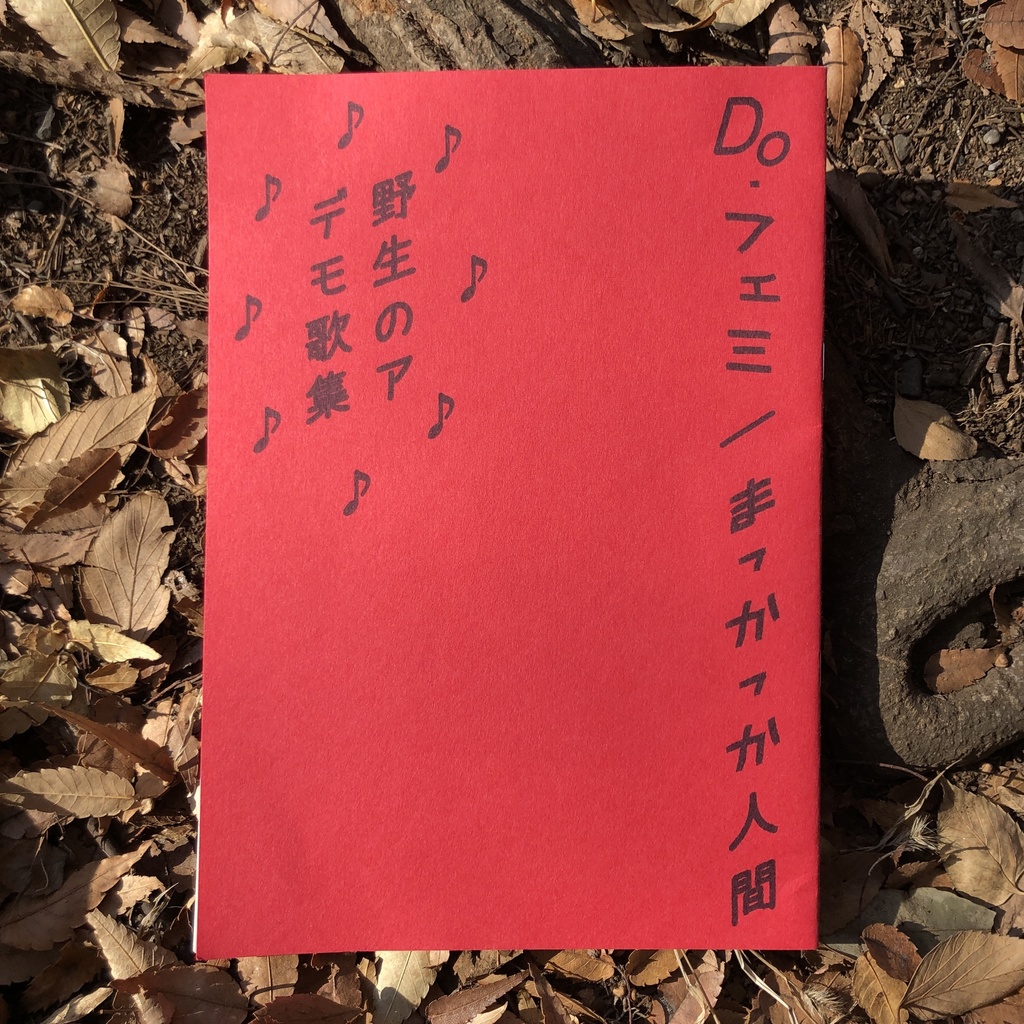 Do・フェミ/まっかっか人間
野生のア
デモ歌集